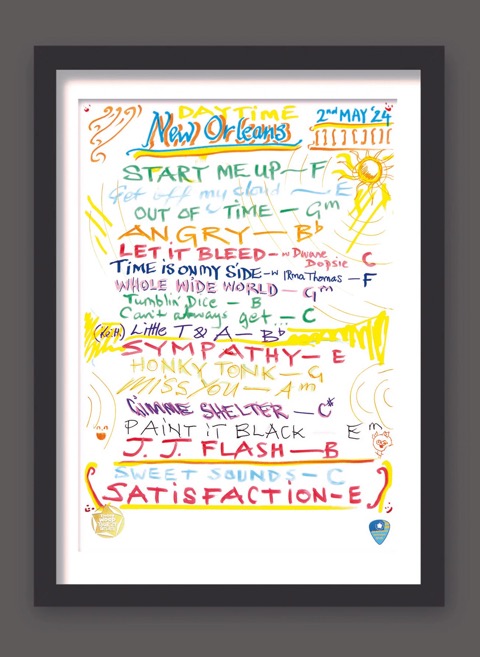 DAYTiME
New Orleans
2nd MAY '24
START ME UP — F
Get off my cloud — E
OUT OF TIME — Gm
ANGRY — Bb
LET iT BLEED - w Dwane Dopsie C
TiME iS ON MY SiDE - w IRma Thomas — F
WHOLE WiDE WORLD — Gm
Tumblin' Dice — B
Can't always get... — C
(Keith) Little T & A — Bb
SYMPATHY — E
HONKY TONK — G
MiSS YOU — Am
GiMME SHELTER — C#
PAiNT iT BLACK Em
J. J. FLASH — B
SWEET SOUNDS — C
SATiSFACTiON - E